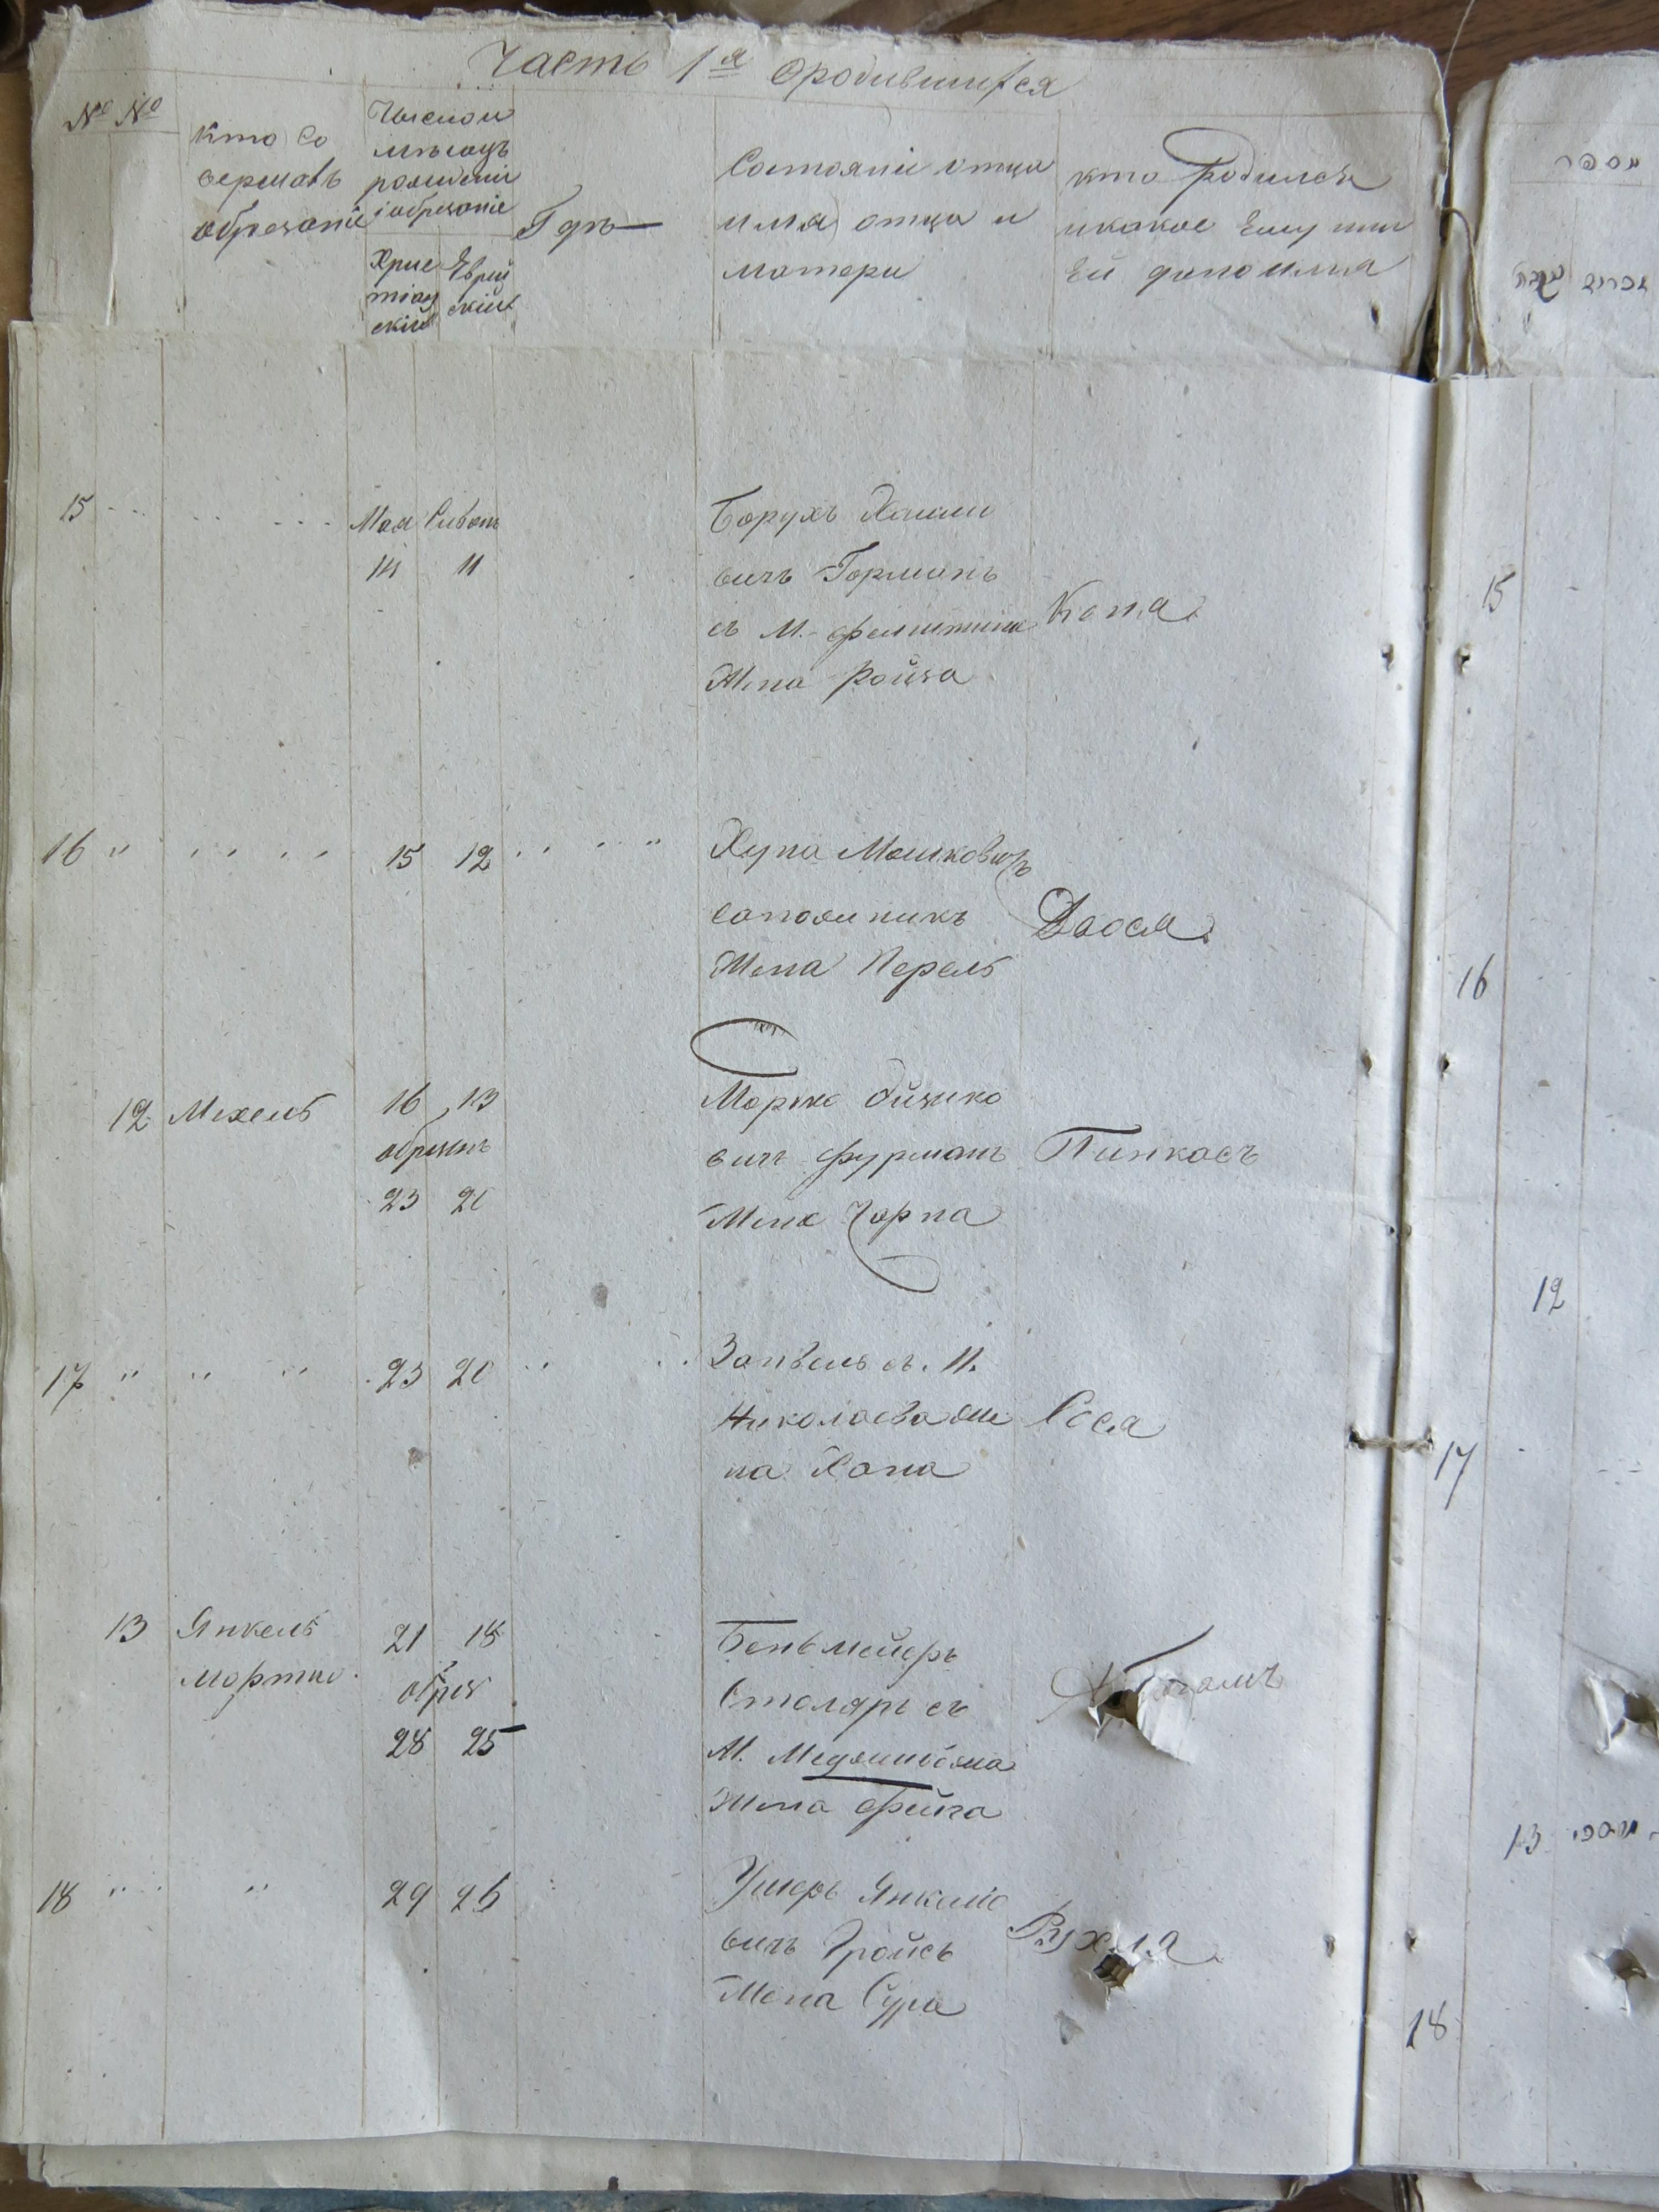 Часть 1я о родившихся
№ №
кто со
вершалъ
обрезаніе
Число и
мѣсяцъ
рожденія
и обрезаніе
Хрис
тіан
скій
Еврей
скій
Гдѣ
Состояніе отца
имя отца и
матери
кто родился
и какое ему или
ей дано имя
15
Мая
14 11
Борухъ Хаимо
вичъ Горманъ
съ М. Фелштина
Жена Ройза
Кона
16
15 12
Хуна Мошковичъ
сапожникъ
Жена Перель
Двося
12 Мехель
16 13
обрезанъ
23 20
Мортко Ойзико
вичъ Фурманъ
Жена Чорна
Пинкасъ
17
23 20
Занвель съ М.
Николаева же
на Хана
Сося
13 Янкель
Мортко
21 18
обрез
28 25
Бенъ Мейеръ
Столяръ съ
М. Меджибожа
Жена Фейга
18
29 26
Ушеръ Янкелю
вичъ Гройсъ
Жена Сура
Рухля
15
16
12
17
13
18